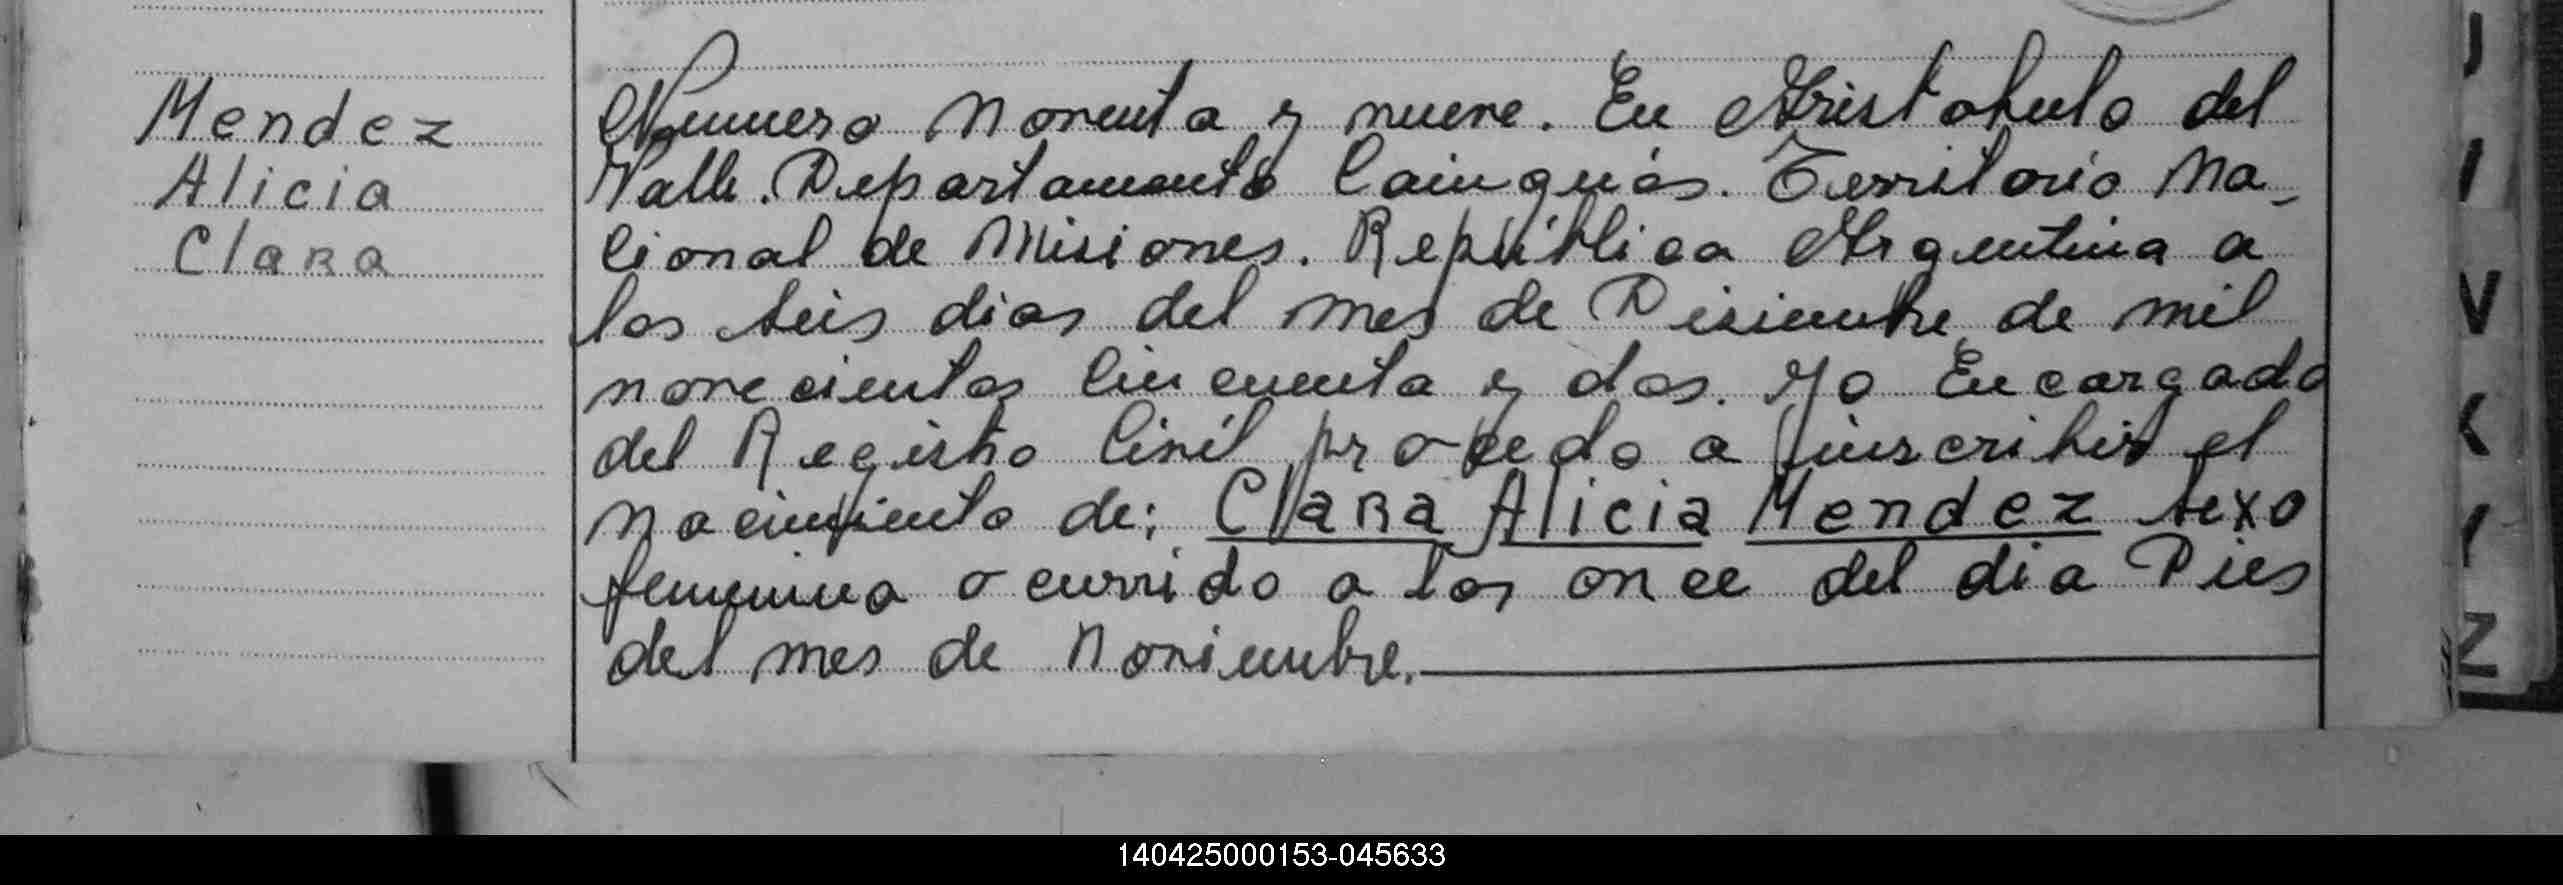 Mendez
Alicia
Clara
Numero Noventa y nueve. En Aristobulo del
Valle. Departamento Cainguás. Territorio Na-
cional de Misiones. República Argentina a
los seis dias del mes de Disiembre de mil
novecientos cincuenta y dos. Yo Encargado
del Registro Civil procedo a inscribir el
nacimiento de: Clara Alicia Mendez sexo
femenino ocurrido a las once del dia Dies
del mes de Noviembre.
J
I
V
K
Y
Z
140425000153-045633